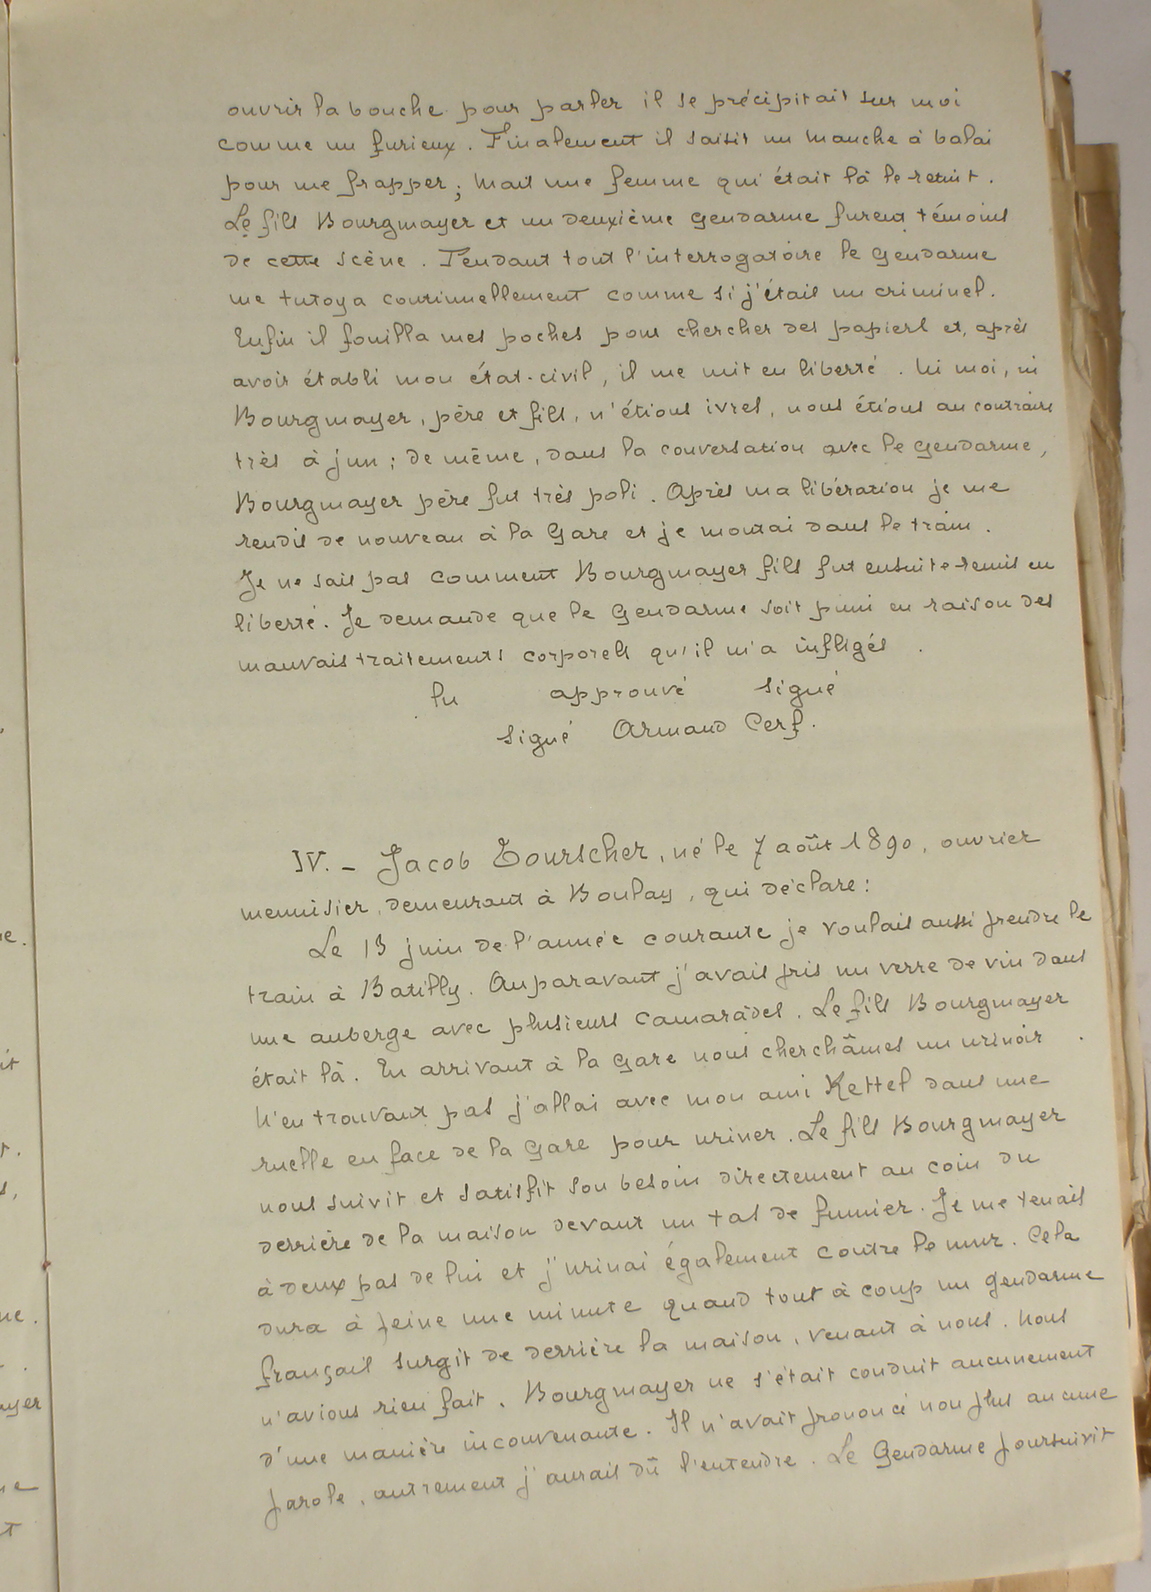 ouvrir la bouche pour parler il se précipitait sur moi
comme un furieux. Finalement il saisit un manche à balai
pour me frapper; mais une femme qui était là le retint.
Le fils Bourgmayer et un deuxième gendarme furent témoins
de cette scène. Pendant tout l'interrogatoire le gendarme
me tutoya continuellement comme si j'étais un criminel.
Enfin il fouilla mes poches pour chercher des papiers et, après
avoir établi mon état-civil, il me mit en liberté. Ni moi, ni
Bourgmayer, père et fils, n'étions ivres, nous étions au contraire
très à jun; de même, dans la conversation avec le gendarme,
Bourgmayer père fut très poli. Après ma libération je me
rendis de nouveau à la Gare et je montai dans le train.
Je ne sais pas comment Bourgmayer fils fut ensuite remis en
liberté. Je demande que le Gendarme soit puni en raison des
mauvais traitements corporels qu'il m'a infligés.
lu approuvé signé
signé Armand Cerf.
IV. - Jacob Tourscher, né le 7 août 1890, ouvrier
menuisier, demeurant à Boulay, qui déclare:
Le 13 juin de l'année courante je voulais aussi prendre le
train à Batilly. Auparavant j'avais pris un verre de vin dans
une auberge avec plusieurs camarades. Le fils Bourgmayer
était là. En arrivant à la gare nous cherchâmes un urinoir.
N'en trouvant pas j'allai avec mon ami Kettel dans une
ruelle en face de la gare pour uriner. Le fils Bourgmayer
nous suivit et satisfit son besoin directement au coin du
derrière de la maison devant un tas de fumier. Je me tenais
à deux pas de lui et j'urinai également contre le mur. Cela
dura à peine une minute quand tout à coup un gendarme
français surgit de derrière la maison, venant à nous. Nous
n'avions rien fait. Bourgmayer ne s'était conduit aucunement
d'une manière inconvenante. Il n'avait prononcé non plus aucune
parole, autrement j'aurais dû l'entendre. Le Gendarme poursuivit